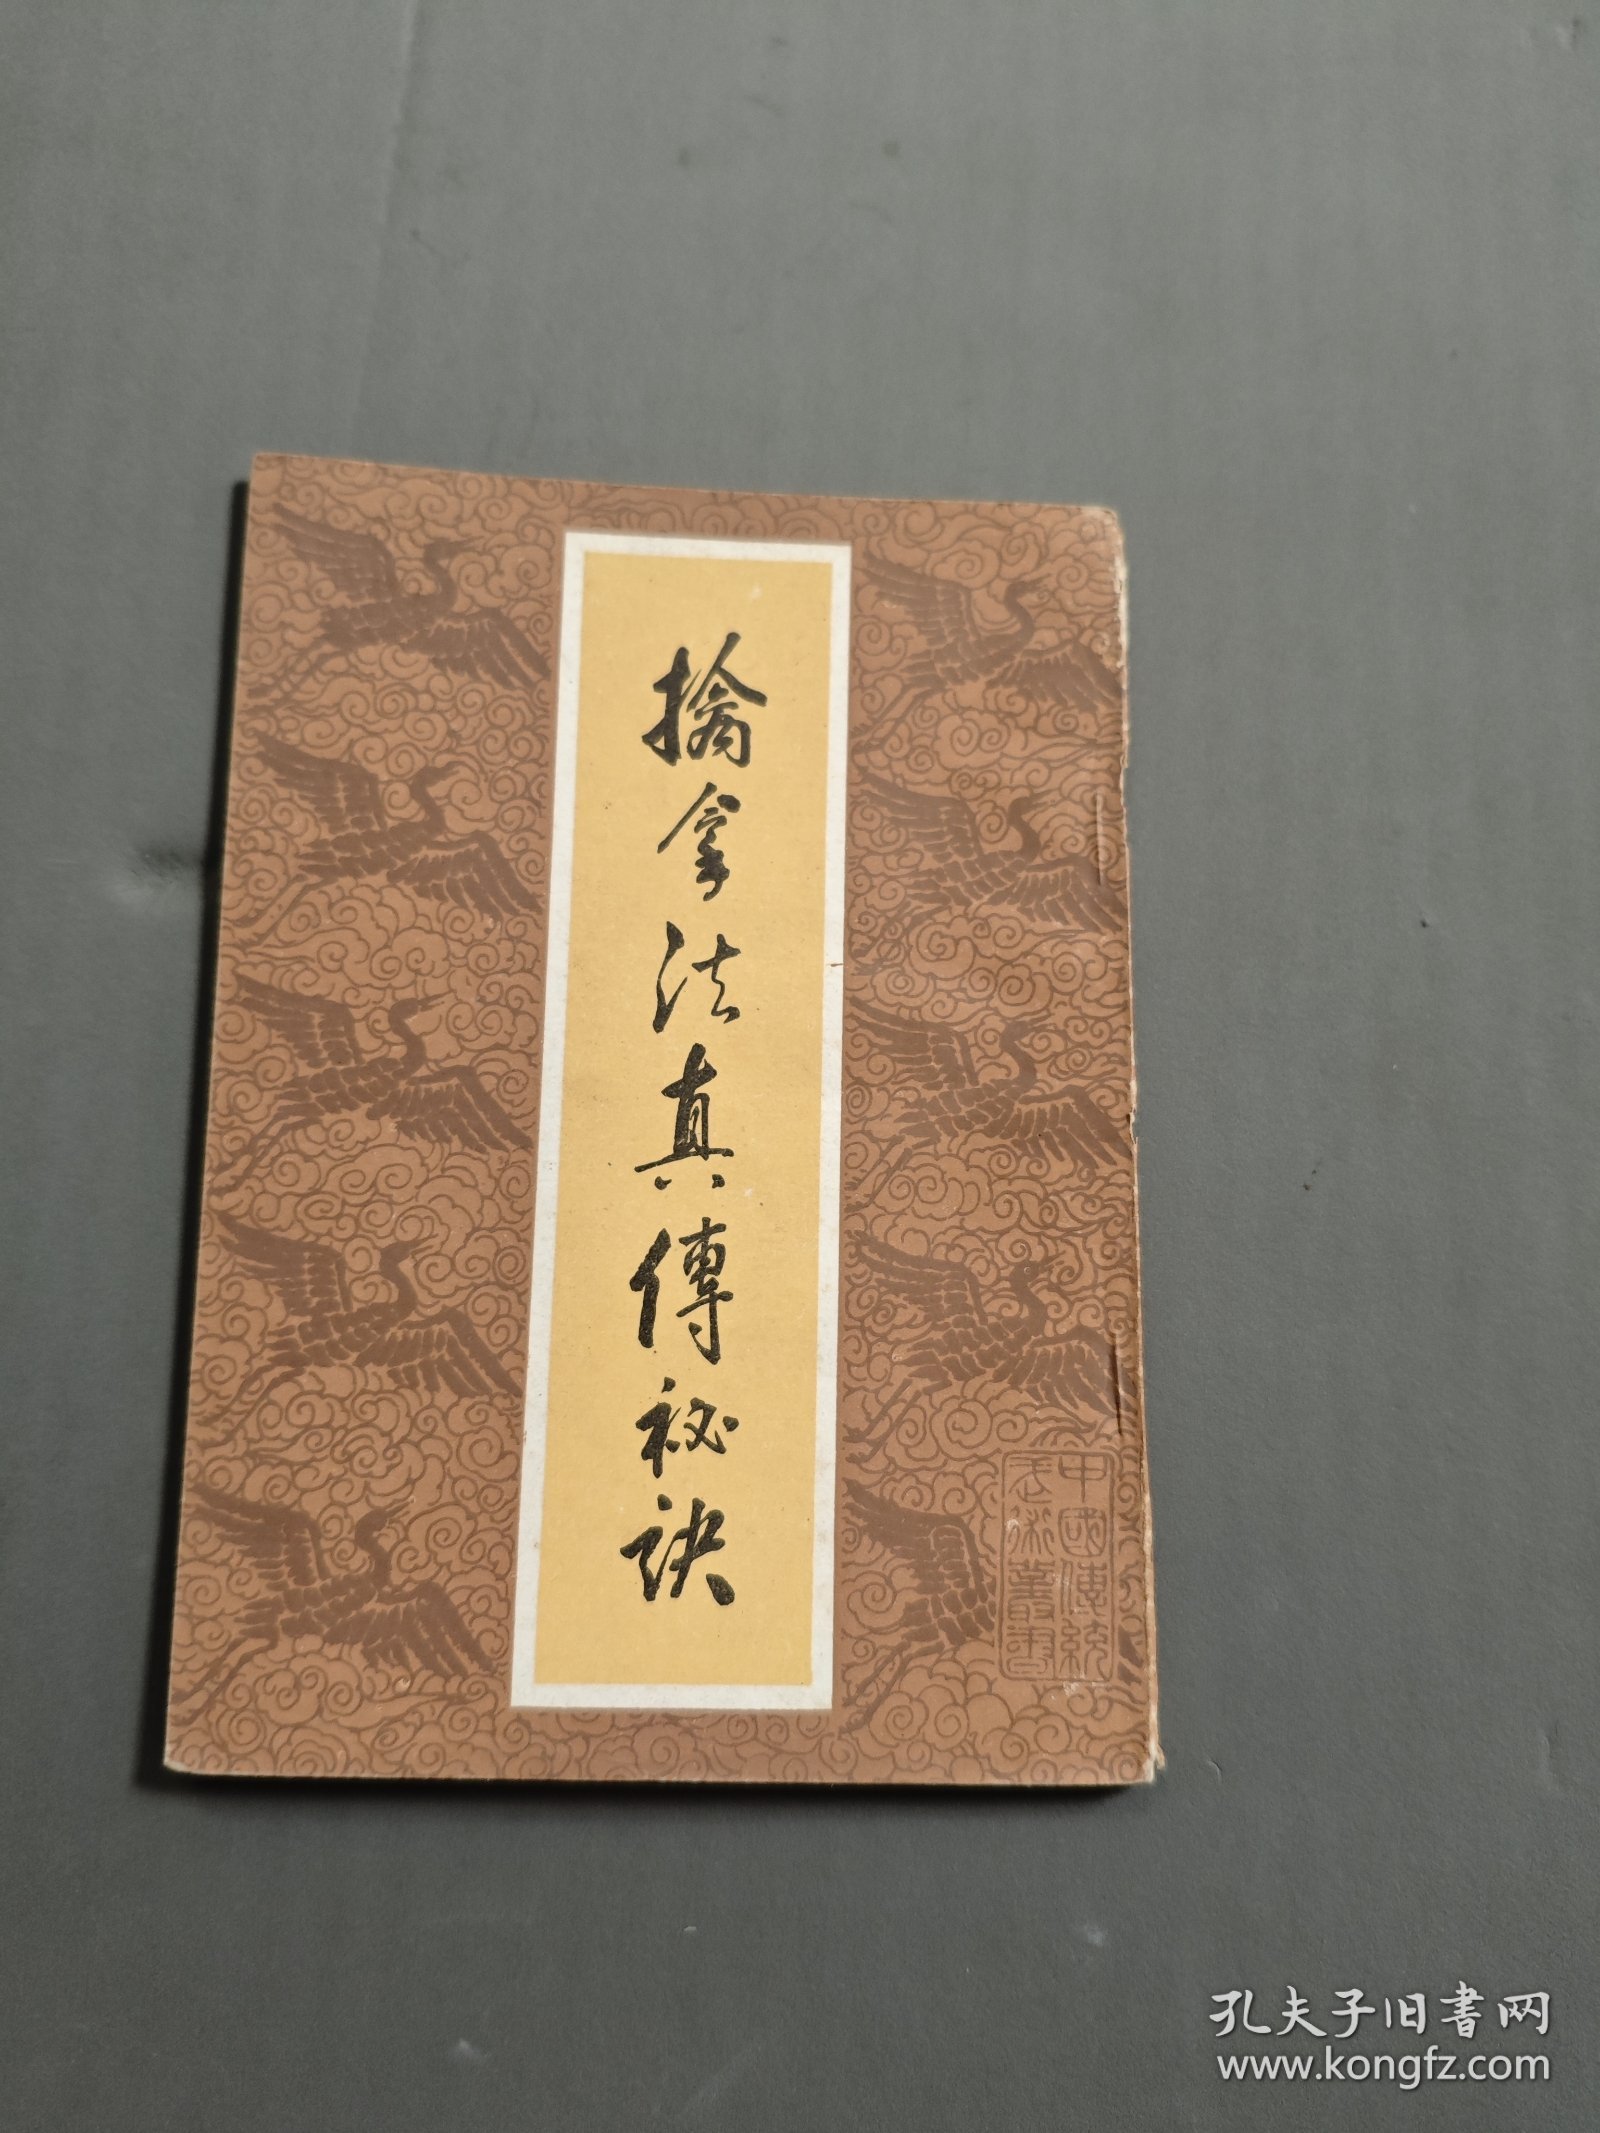 擒拿法真傳祕訣
中國傳統
武術叢書
孔夫子旧書网
www.kongfz.com